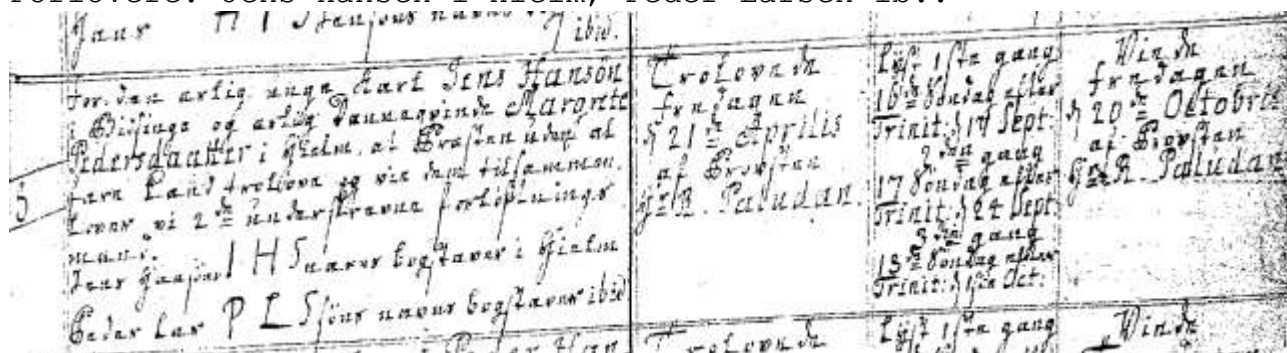 ibid.
for. den ærlig unge Karl Jens Hansön
i og ærlig Dannaqvinde Margrete
Pedersdaatter i Hielm, at Præsten uden al
fare kand trolove og vie dem tilsammen.
lover vi 2de underskrevne forlöfnings
mænd.
Jens I H S navns bogstaver i Hielm
Peder Lar P L S söns navns bogstaver ibid
5
Trolovede
fredagen
d 21de Aprilis
af Provsten
Hr R. Paludan.
Lyst 1ste gang
16de Söndag efter
Trinit: d 17 Sept:
2den gang
17 Söndag efter
Trinit: d 24 Sept:
3die gang
18de Söndag efter
Trinit: d 1ste Oct:
Viede
fredagen
d 20de Octobris
af Provsten
Hr R. Paludan
Peder Han
Trolovede
Lyst 1ste gang
Viede